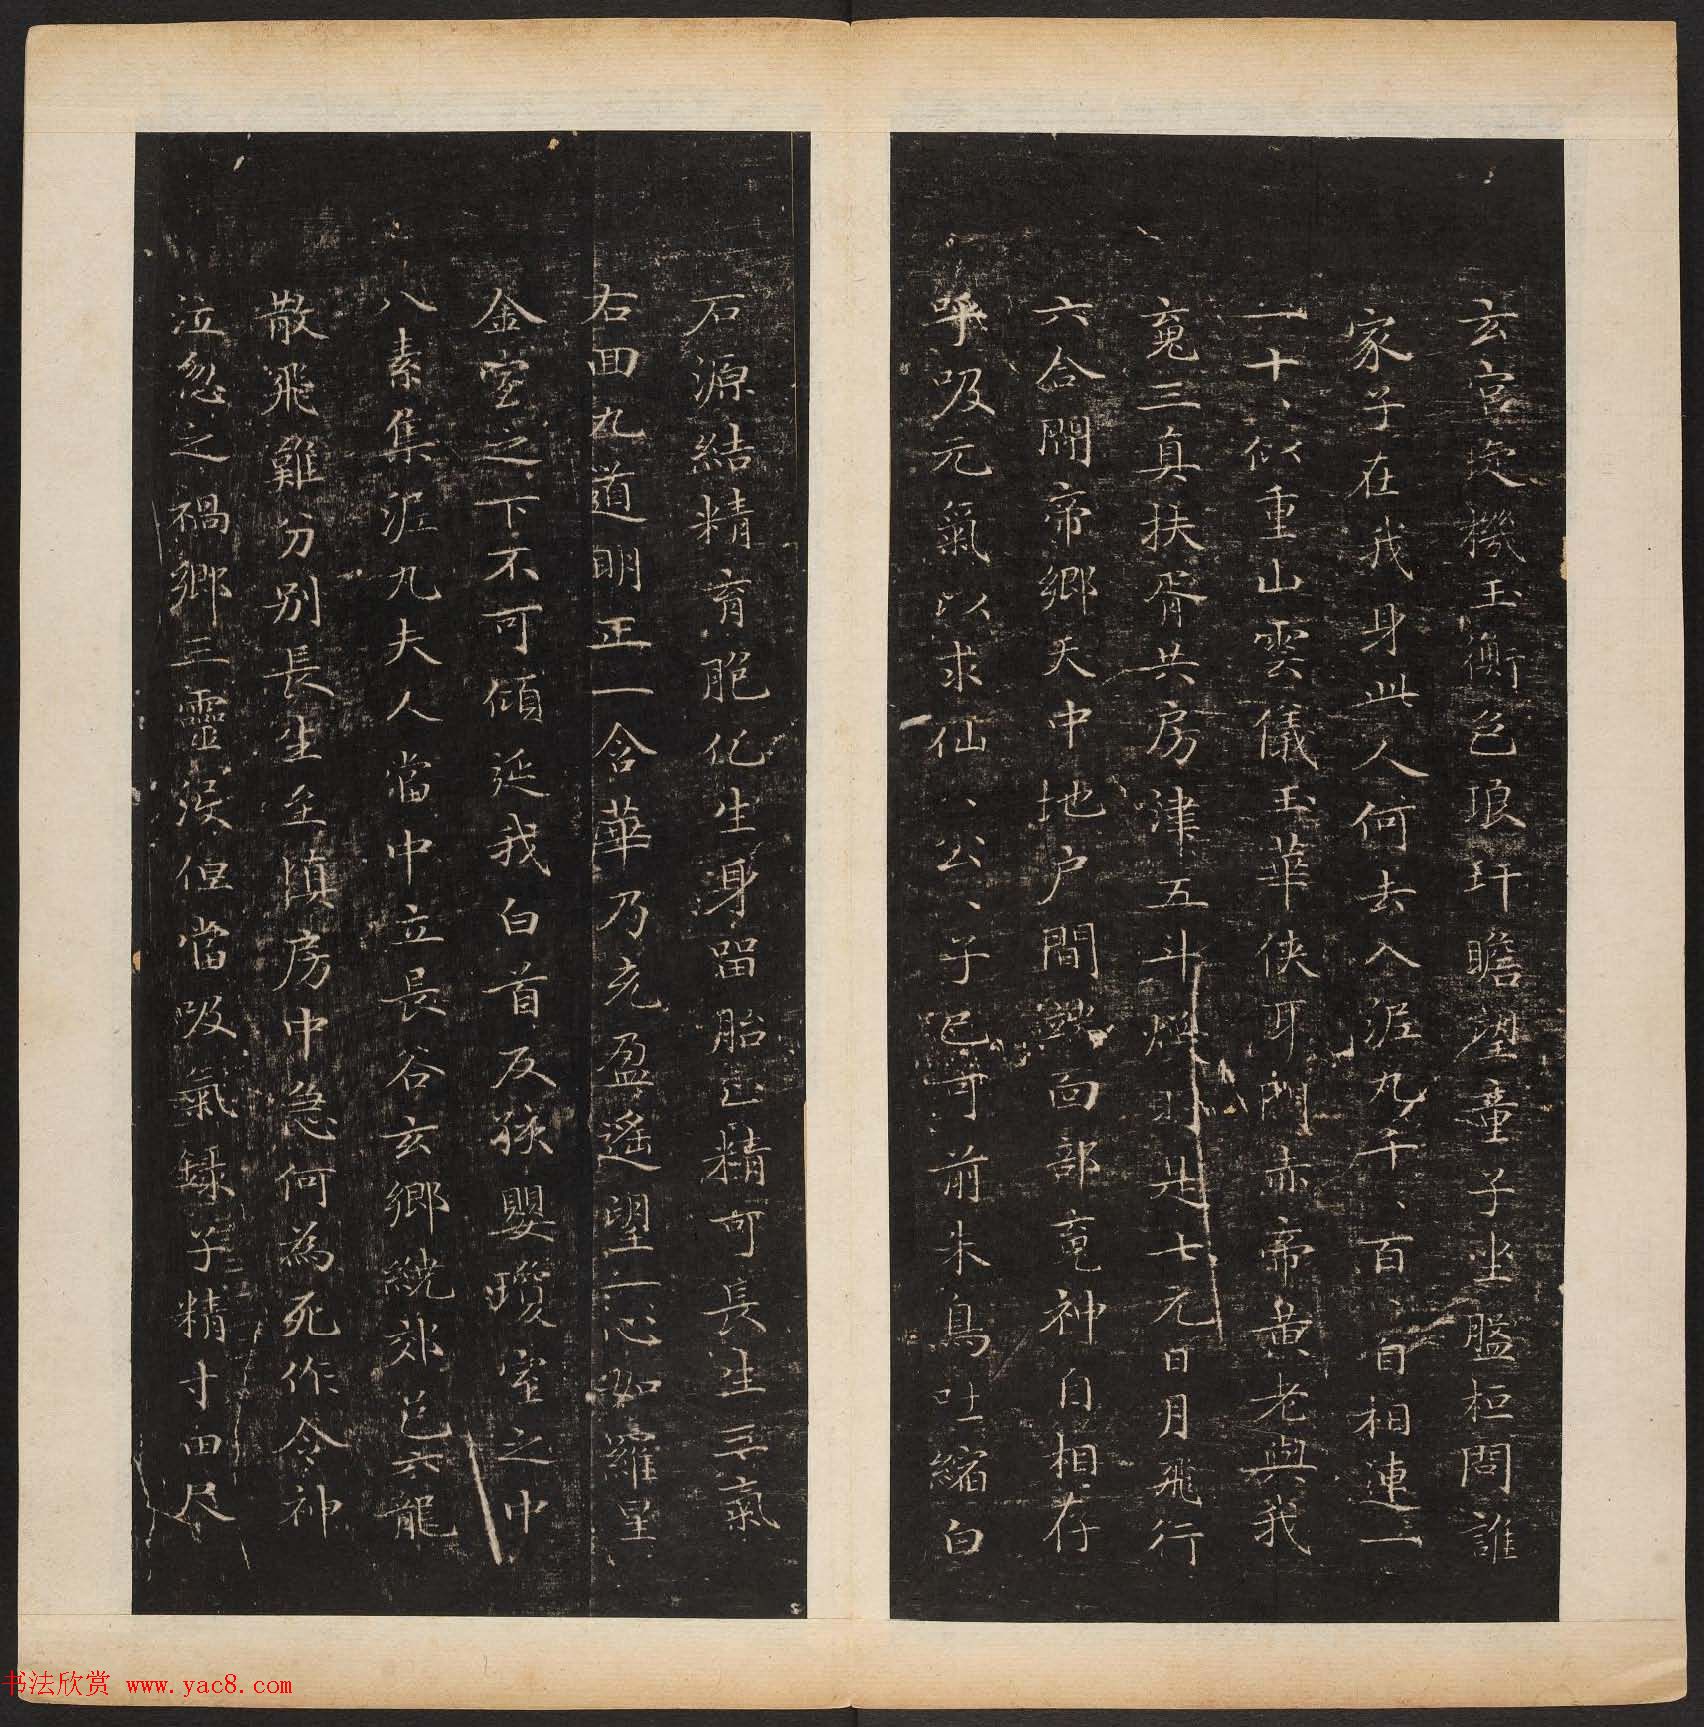 玄宮旋機玉衡色琅玕瞻望童子坐盤桓問誰
家子在我身此人何去入泥丸千、百、自相連一
一十、似重山雲儀玉華俠耳門赤帝黃老與我
䰟三真扶胥共房津五斗煥明是七元日月飛行
六合間帝鄉天中地户間面部䰟神自相存
呼吸元氣以求仙、公、子已可前朱鳥吐縮白
石源結精育胞化生身留胎止精可長生三氣
右回九道明正一含華乃充盈遙望一心如羅星
金室之下不可傾延我白首反孩嬰瓊室之中
八素集泥丸夫人當中立長谷玄鄉繞郊邑六龍
散飛難分別長生至慎房中急何為死作令神
泣忽之禍鄉三靈沒但當吸氣錄子精寸田尺
书法欣赏 www.yac8.com